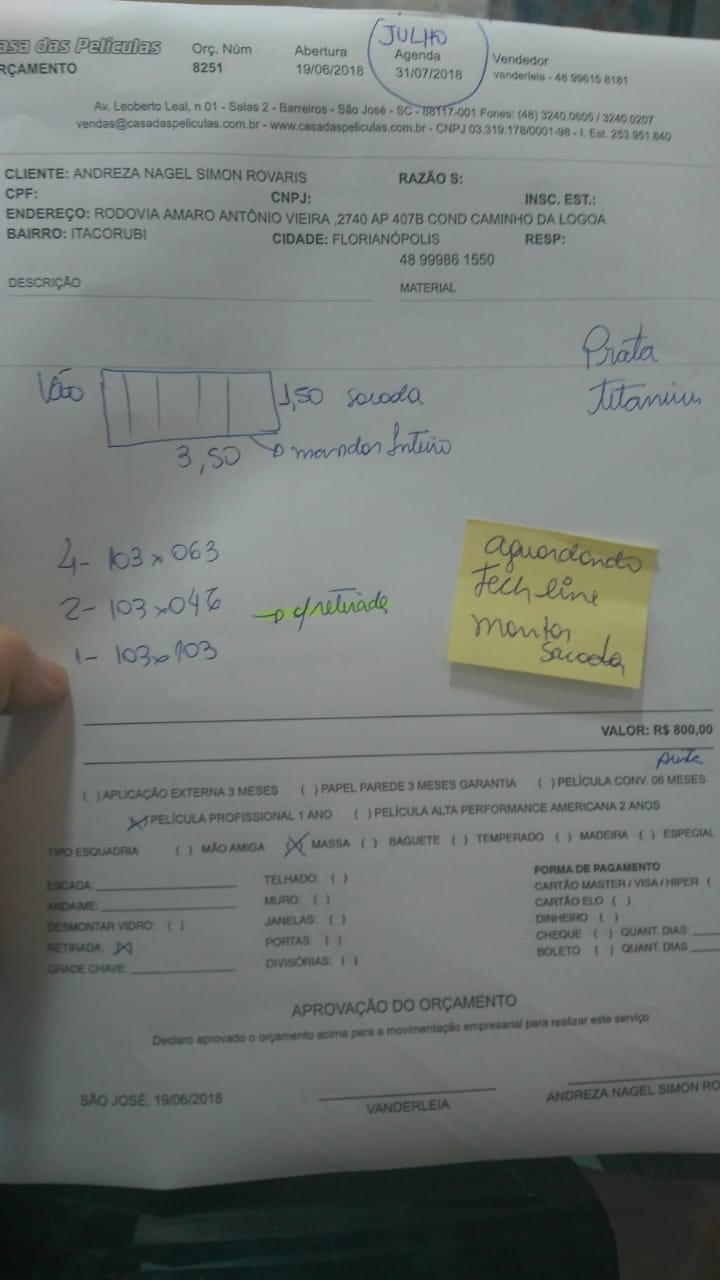 JULHO
asa das Películas Orç. Núm Abertura Agenda Vendedor
RÇAMENTO 8251 19/06/2018 31/07/2018 vanderleia - 48 99615 8181
Av. Leoberto Leal, n 01 - Salas 2 - Barreiros - São José - SC - 88117-001 Fones: (48) 3240.0605 / 3240.0207
vendas@casadaspeliculas.com.br - www.casadaspeliculas.com.br - CNPJ 03.319.178/0001-98 - I. Est. 253.951.640
CLIENTE: ANDREZA NAGEL SIMON ROVARIS RAZÃO S:
CPF: CNPJ: INSC. EST.:
ENDEREÇO: RODOVIA AMARO ANTÔNIO VIEIRA ,2740 AP 407B COND CAMINHO DA LOGOA
BAIRRO: ITACORUBI CIDADE: FLORIANÓPOLIS RESP:
48 99986 1550
DESCRIÇÃO MATERIAL
Prata
Titanium
Vão 1,50 sacada
3,50 mandar Inteiro
4- 103x063
2- 103x046 c/retirada
1- 103x103
aguardando
Tech line
montar
sacada
VALOR: R$ 800,00
( )APLICAÇÃO EXTERNA 3 MESES ( )PAPEL PAREDE 3 MESES GARANTIA ( )PELÍCULA CONV. 06 MESES
(X)PELÍCULA PROFISSIONAL 1 ANO ( )PELÍCULA ALTA PERFORMANCE AMERICANA 2 ANOS
TIPO ESQUADRIA ( ) MÃO AMIGA (X) MASSA ( ) BAGUETE ( ) TEMPERADO ( ) MADEIRA ( ) ESPECIAL
ESCADA: TELHADO: ( ) FORMA DE PAGAMENTO
ANDAIME: MURO: ( ) CARTÃO MASTER / VISA / HIPER (
DESMONTAR VIDRO: ( ) JANELAS: ( ) CARTÃO ELO ( )
RETIRADA: (X) PORTAS: ( ) DINHEIRO ( )
GRADE CHAVE: DIVISÓRIAS: ( ) CHEQUE ( ) QUANT. DIAS:
BOLETO ( ) QUANT. DIAS
APROVAÇÃO DO ORÇAMENTO
Declaro aprovado o orçamento acima para a movimentação empresarial para realizar este serviço
SÃO JOSÉ, 19/06/2018 VANDERLEIA ANDREZA NAGEL SIMON RO